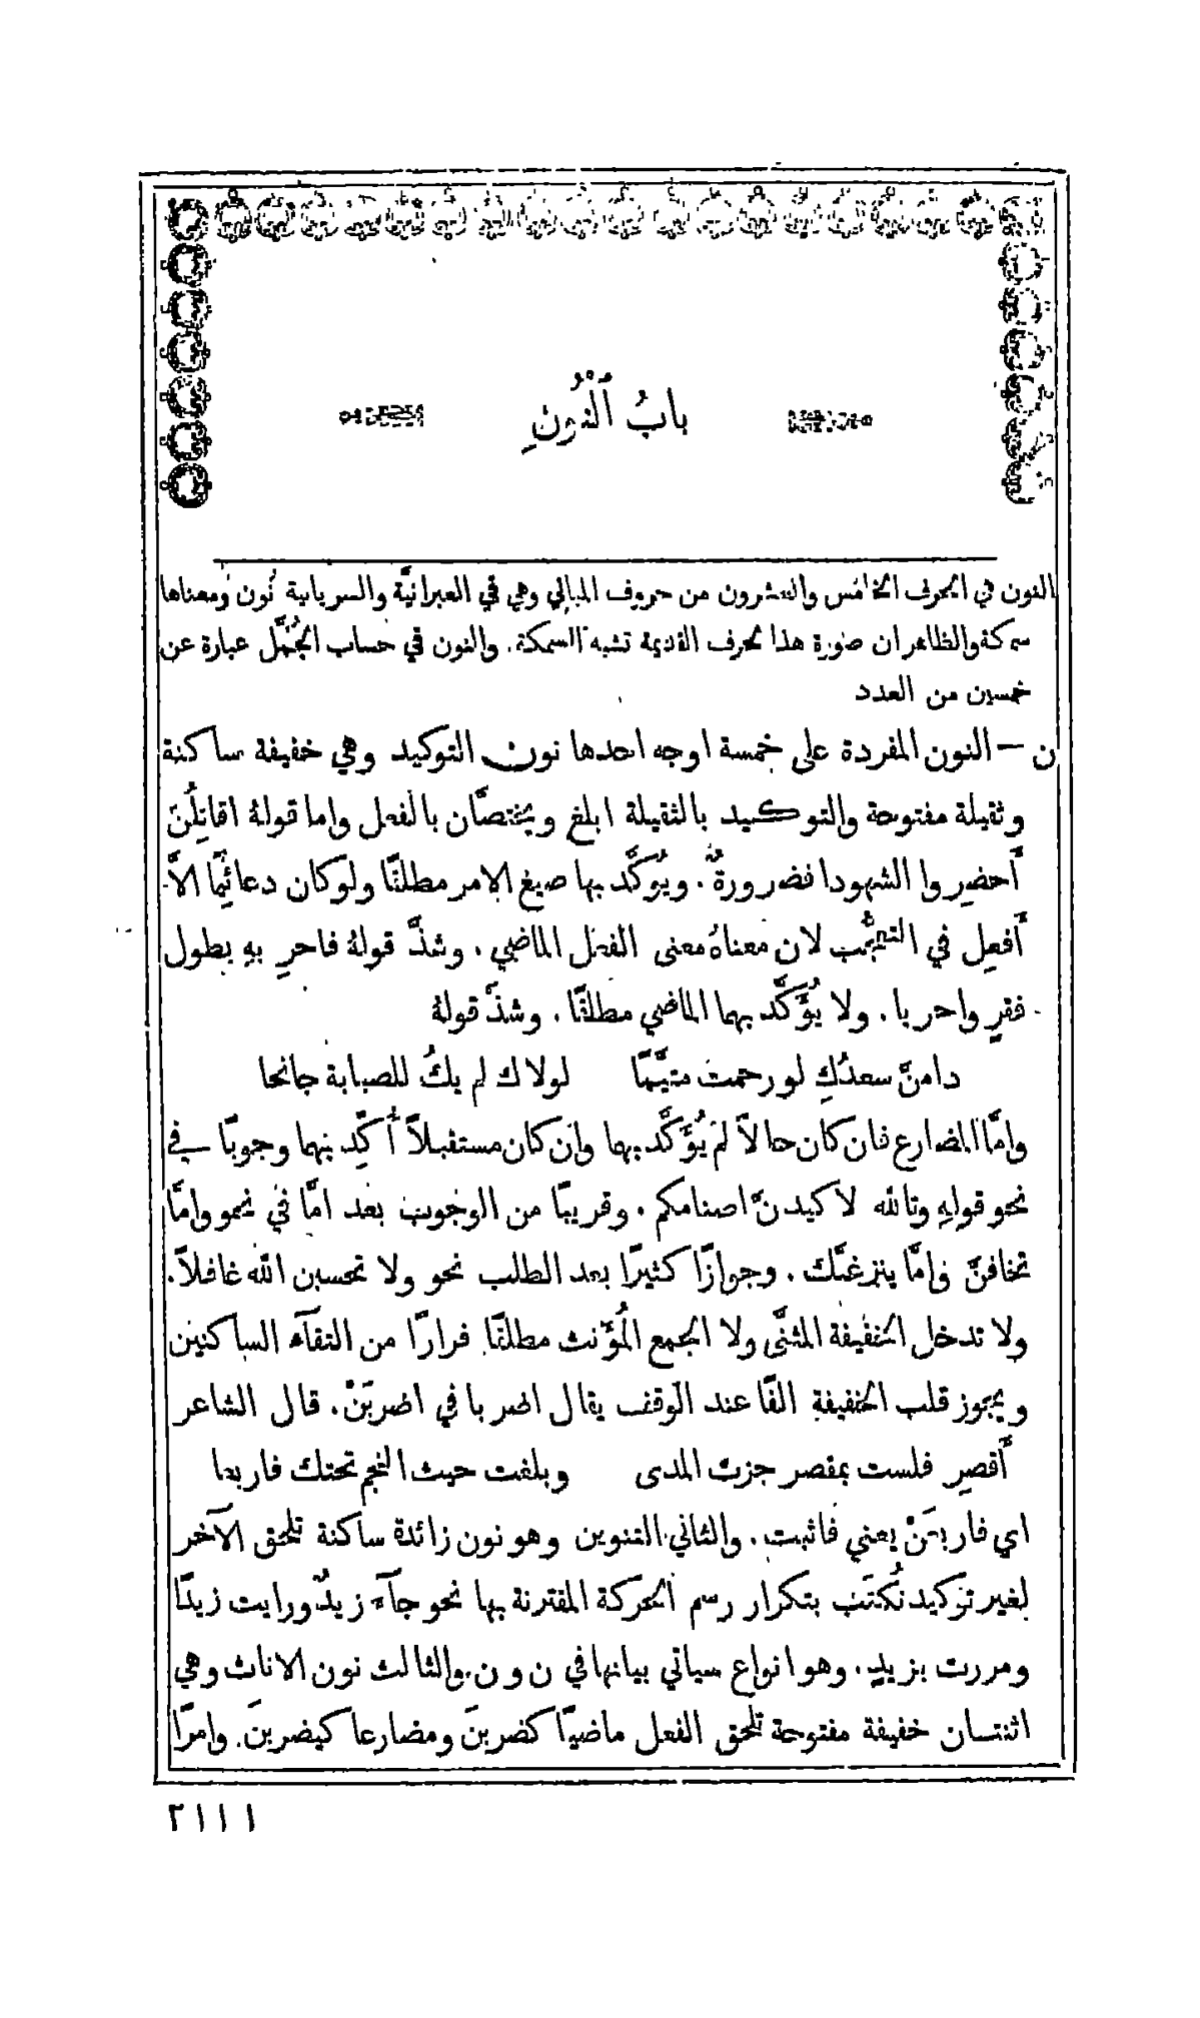 بابُ ٱلْنُوْنِ
النون هي الحرف الخامس والعشرون من حروف المباني وهي في العبرانيَّة والسريانية نُون ومعناها
سمكة والظاهر ان صورة هذا الحرف القديمة تشبه السمكة. والنون في حساب الجُمَّل عبارة عن
خمسين من العدد
ن — النون المفردة على خمسة اوجه احدها نون التوكيد وهي خفيفة ساكنة
وثقيلة مفتوحة والتوكيد بالثقيلة ابلغ ويختصَّان بالفعل واما قولهُ اقائِلُنَ
أَحضِروا الشهودا فضرورةٌ. ويُوكَّد بها صيغ الامر مطلقًا ولو كان دعائيًّا الاَّ
أَفعِل في التعجُّب لان معناهُ معنى الفعل الماضي. وشذَّ قولهُ فاحرِ بهِ بطول
فقرٍ واحريا. ولا يُؤَكَّد بهما الماضي مطلقًا. وشذَّ قولهُ
دامنَّ سعدُكِ لو رحمت متيَّمًا لولاك لم يكُ للصبابة جانحا
وامَّا المضارع فان كان حالاً لم يُؤَكَّد بهما وان كان مستقبلاً أُكِّد بهما وجوبًا في
نحو قولهِ وتالله لاكيدنَّ اصنامكم. وقريبًا من الوجوب بعد امَّا في نحو وامَّا
تخافنَّ وامَّا ينزغنَّك. وجوازًا كثيرًا بعد الطلب نحو ولا تحسبن الله غافلاً.
ولا تدخل الخفيفة المثنَّى ولا الجمع المُؤنث مطلقًا فرارًا من التقآء الساكنين
ويجوز قلب الخفيفة الفًا عند الوقف يقال اضربا في اضربَنْ. قال الشاعر
أَقصِر فلست بمقصر جزت المدى وبلغت حيث النجم تحتك فاربعا
اي فاربعَنْ يعني فاثبت. والثاني التنوين وهو نون زائدة ساكنة تلحق الآخر
لغير توكيد تُكتَب بتكرار رسم الحركة المقترنة بها نحو جآءَ زيدٌ ورايت زيدًا
ومررت بزيدٍ. وهو انواع سياتي بيانها في ن و ن. والثالث نون الاناث وهي
اثنتان خفيفة مفتوحة تلحق الفعل ماضيًا كضربنَ ومضارعا كيضربنَ. وامرًا
٢١١١